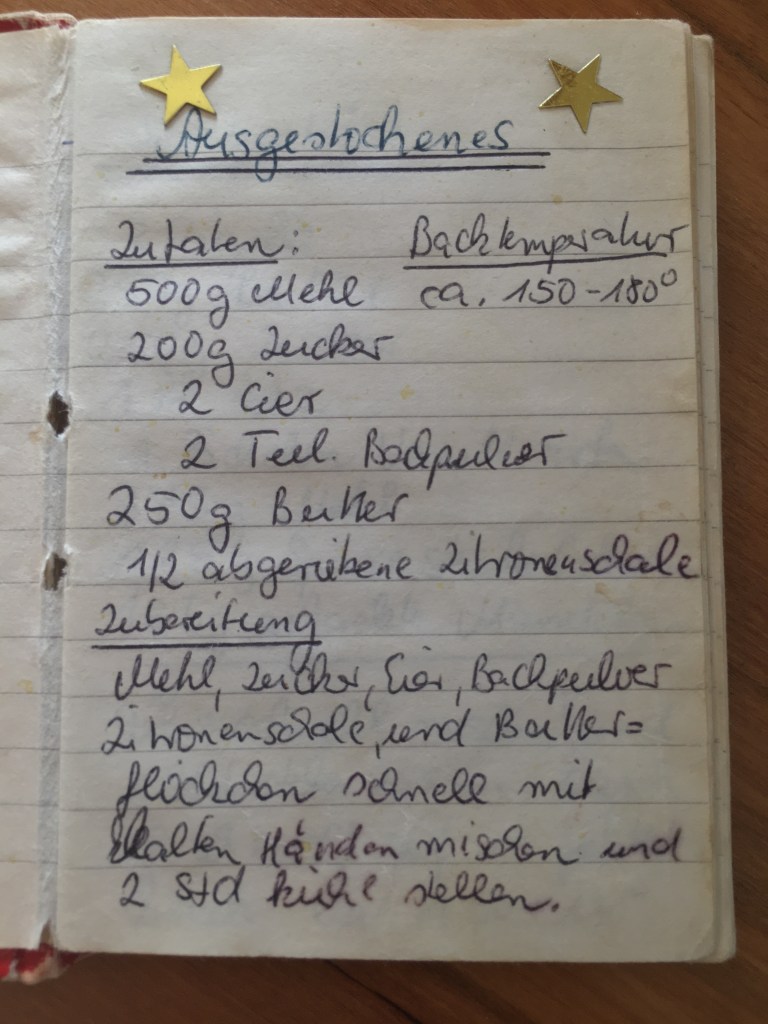 Ausgestochenes
Zutaten: Backtemperatur
500g Mehl ca. 150-180°
200g Zucker
2 Eier
2 Teel. Backpulver
250g Butter
1/2 abgeriebene Zitronenschale
Zubereitung
Mehl, Zucker, Eier, Backpulver
Zitronenschale, und Butter=
flöckchen schnell mit
kalten Händen mischen und
2 Std kühl stellen.